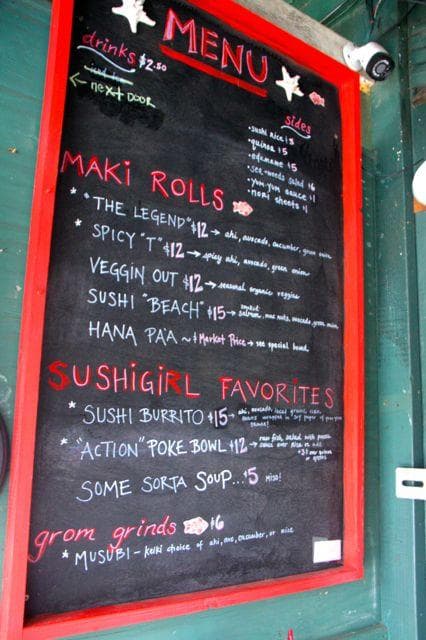 MENU
drinks $2.50
← next DOOR
sides
• sushi rice $3
• quinoa $5
• edamame $5
• sea-weeds salad $6
• yum-yum sauce $1
• nori sheets $1
MAKI ROLLS
* "THE LEGEND" $12 → ahi, avocado, cucumber, green onion
* SPICY "T" $12 → spicy ahi, avocado, green onion
VEGGIN OUT $12 → seasonal organic veggies
SUSHI "BEACH" $15 → smoked salmon, mac nuts, avocado, green onion
HANA PA'A ~ $ Market Price → see special board.
SUSHIGIRL FAVORITES
* SUSHI BURRITO $15 → ahi, avocado, local greens, rice
wrapped in soy paper
sauce!
* "ACTION" POKE BOWL $12 → raw fish, salad with
sauce over rice
SOME SORTA SOUP... $5 miso!
grom grinds $6
* MUSUBI - keiki choice of ahi, cucumber, or rice